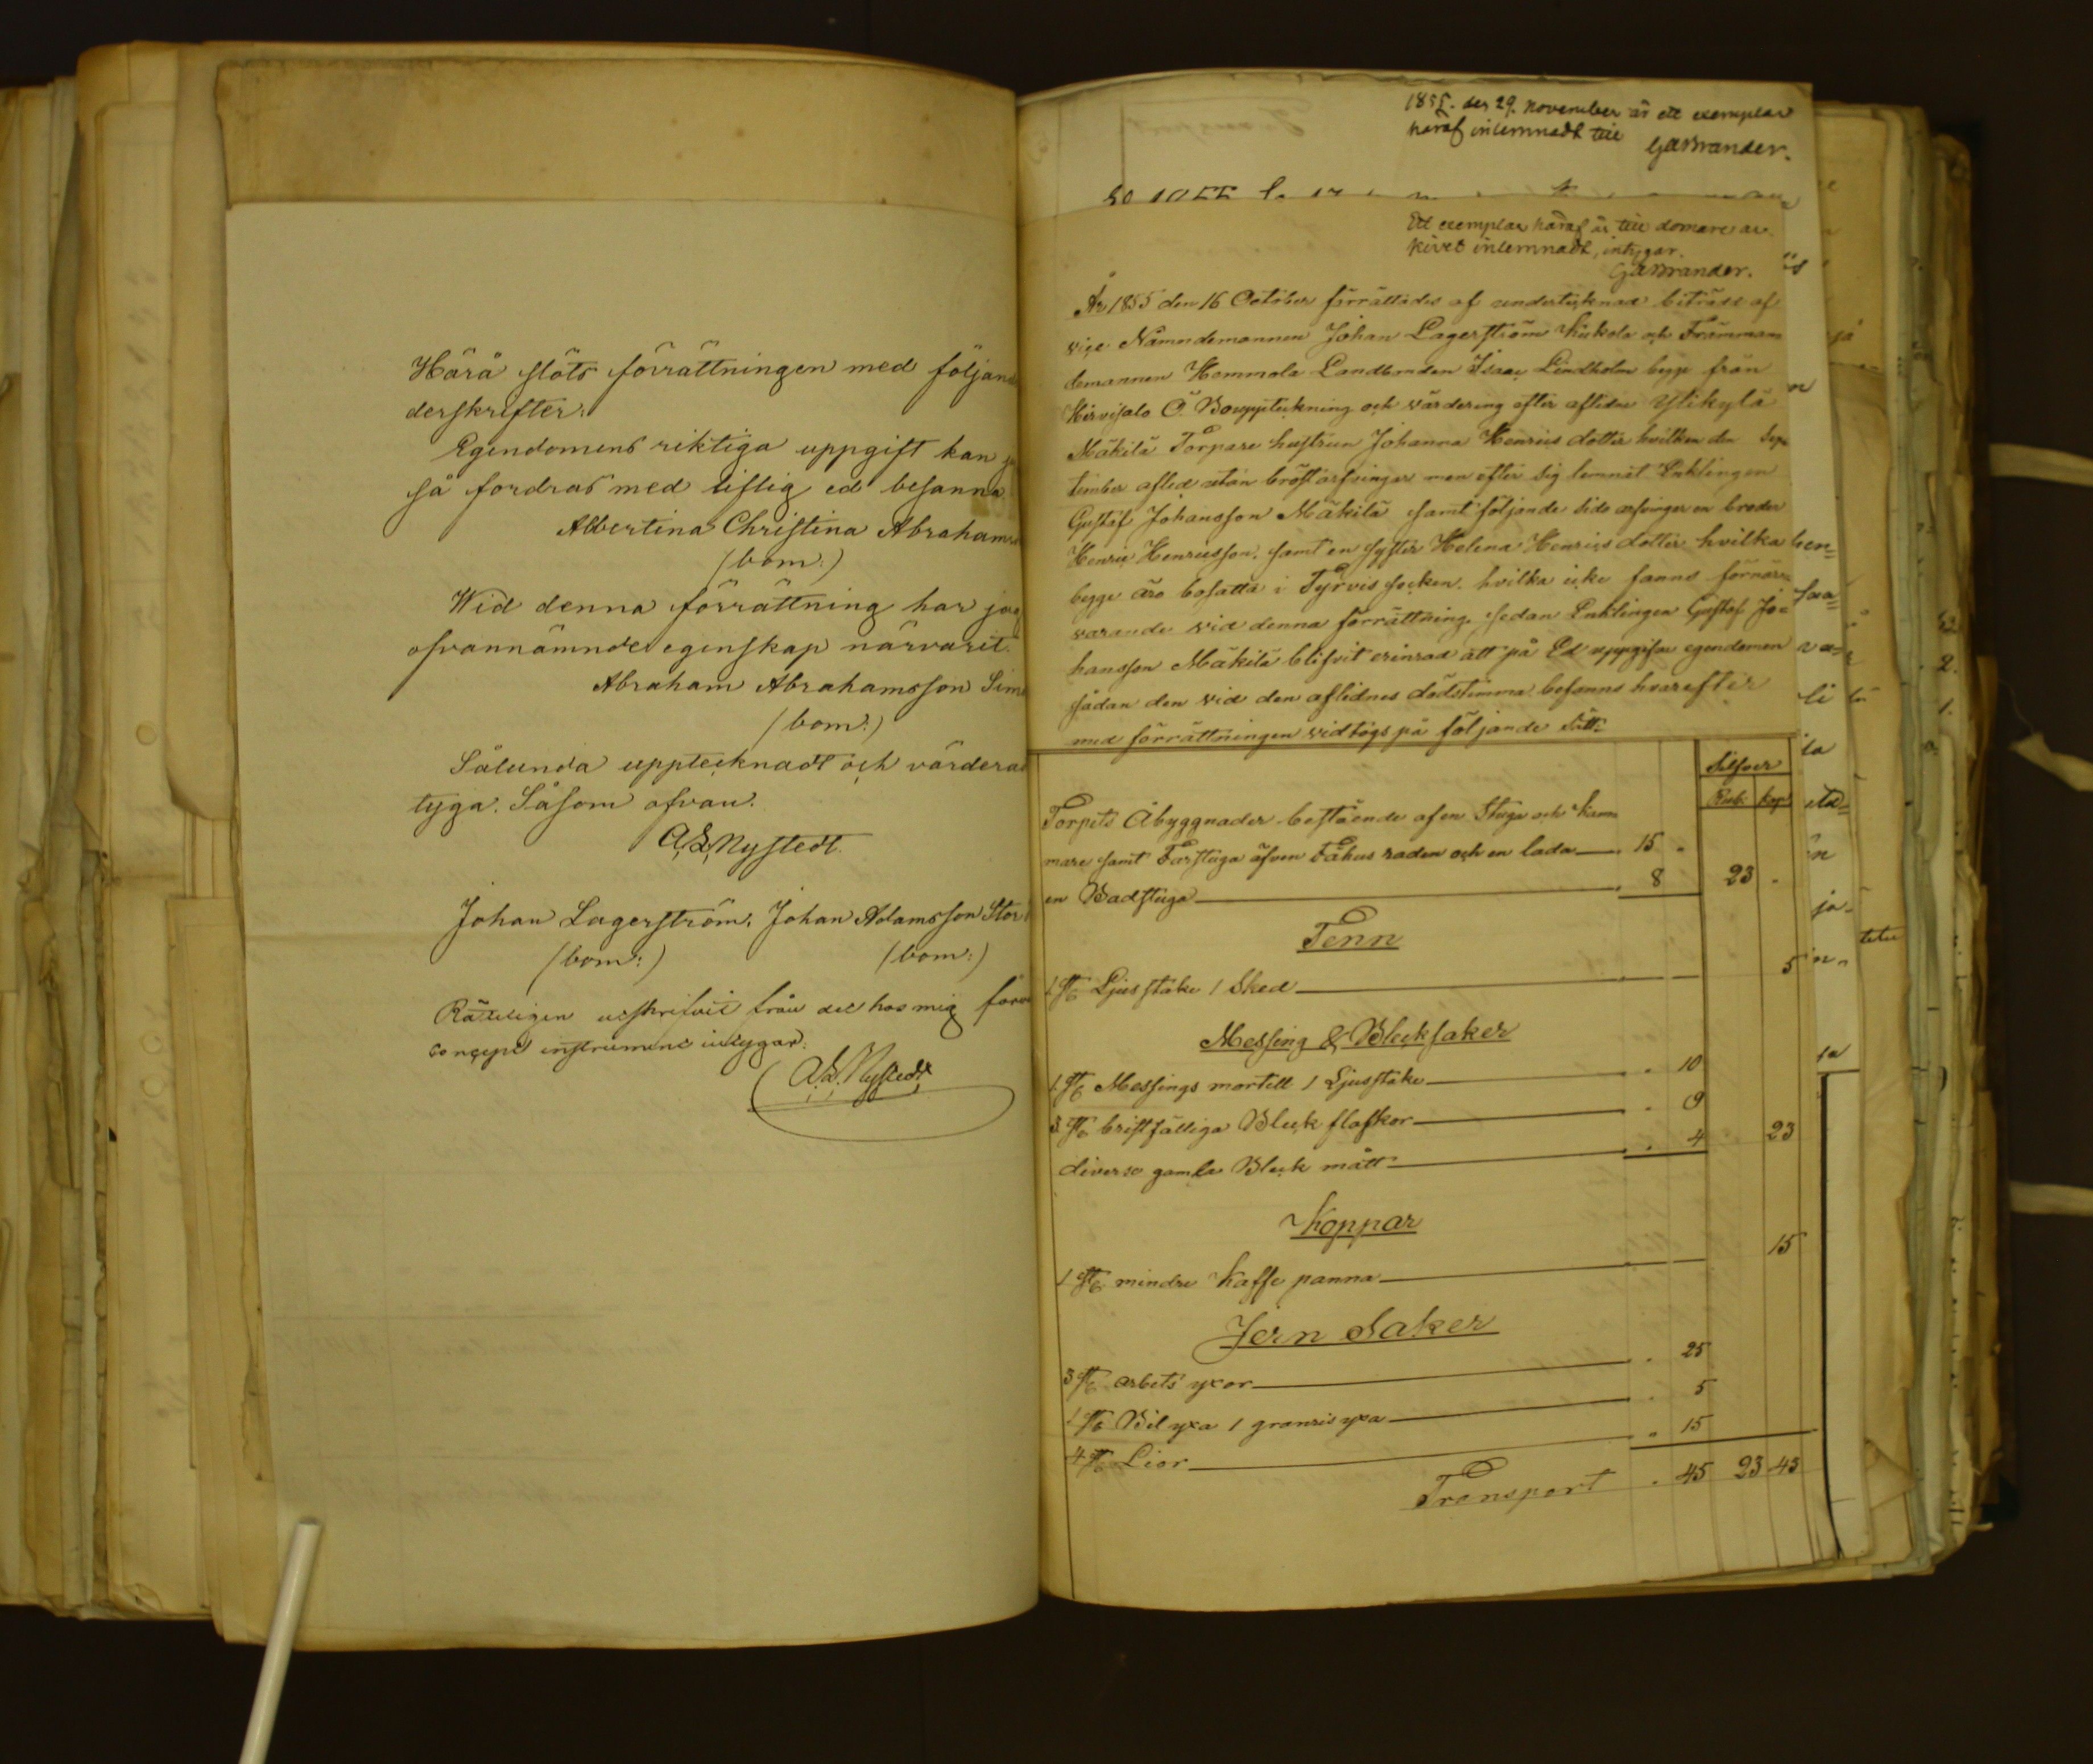 Härå slöts förrättningen med följan
derskrifter:
Egendomens riktiga uppgift kan
så fordras med liflig ed besanna
Albertina Christina Abraham
(bom:)
Wid denna förrättning har jag
ofvannämnde egenskap närvarit.
Abraham Abrahamsson Sim
(bom:)
Sålunda uppteeknadt och värdera
tyga. Såsom ofvan.
A. L. Nystedt.
Johan Lagerström. Johan Adamsson Stor
(bom:) (bom:)
Rätteligen utskrifvit från det hos mig förv
concept instrument intygar:
A. L. Nystedt
1855. den 29. November är ett exemplar
häraf inlemnadt till
GABrander.
Ett exemplar häraf är till domare ar-
kivet inlemnadt, intygar.
GABrander.
År 1855 den 16 October förrättades af undertecknad biträdd af
vice Nämndemannen Johan Lagerström Kukola och Frammam
demannen Hemmola Landbonden Isaac Lindholm begge från
Hirvisalo Ö. Bouppteckning och värdering efter aflidne Ylikylä
Mäkilä Torpare hustrun Johanna Henrics dotter hvilken den Sep
tember afled utan bröstarfvingar men efter sig lemnat Enklingen
Gustaf Johansson Mäkilä samt följande sido arfvingar en broder
Henric Henricsson. samt en syster Helena Henrics dotter hvilka
begge äro bosatta i Tyrvis socken. hvilka icke fanns förnärv
varande vid denna förrättning. sedan Enklingen Gustaf Jo=
hansson Mäkilä blifvit erinrad att på Ed uppgifva egendomen
sådan den vid den aflidnes dödstimma befanns hvarefter
med förrättningen vidtogs på följande sätt:
Silfver
Rub. Kop.
Torpets Åbyggnader bestående af en Stuga och Kam
mare samt Farstuga äfven Fähus raden och en lada 15 "
en Badstuga 8 23 "
Tenn
1 st Ljusstake 1 Sked 5
Messing & Blecksaker
1 st Messings mortell 1 Ljusstake " 10
3 st bristfälliga Bleck flaskor " 9
diverse gamla Bleck mått " 4 23
Koppar
1 st mindre Kaffe panna 15
Jern Saker
3 st arbets yxor " 25
1 st Bil yxa 1 granris yxa " 5
4 st Lior " 15
Transport " 45 23 43